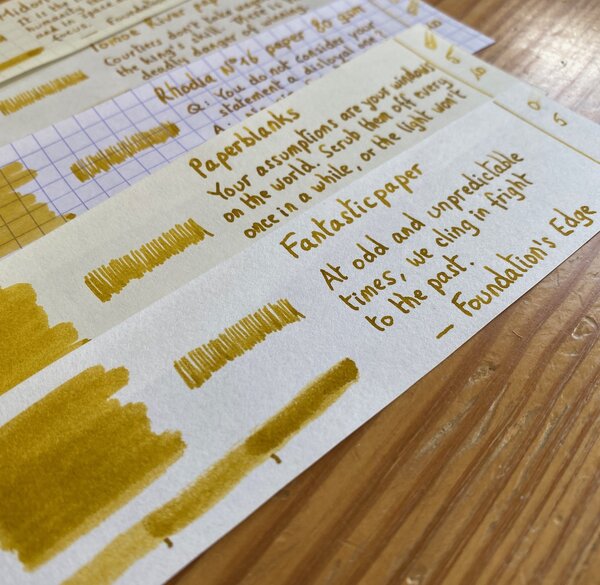 Midori
Tomoe River
Courtiers don't
the king's
deadly danger of
Rhodia N°16 paper 80 gsm
Q: You do not consider your
statement a disloyal one?
A:
Paperblanks
Your assumptions are your windows
on the world. Scrub them off every
once in a while, or the light won't
Fantasticpaper
At odd and unpredictable
times, we cling in fright
to the past.
— Foundation's Edge
0
5